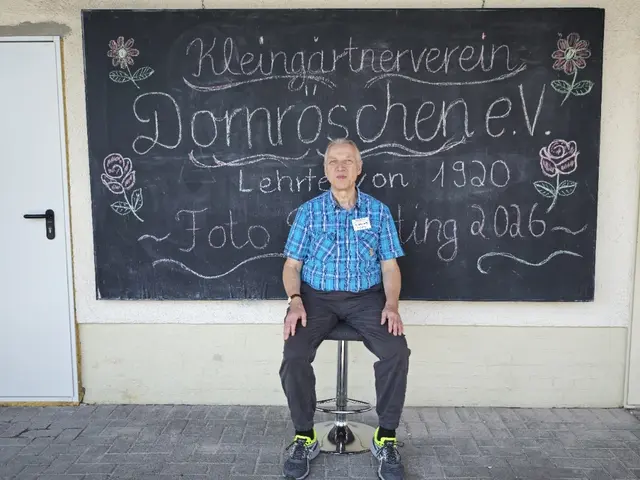 Kleingärtnerverein
Dornröschen e.V.
Lehrte von 1920
~Foto ting 2026~